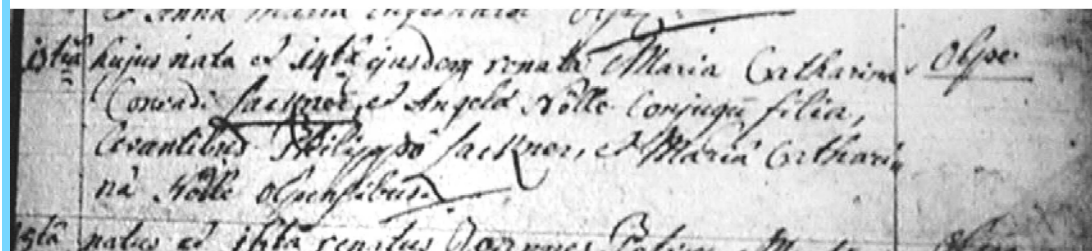 et Anna Maria
13tiâ hujus nata et 14tâ ejusdem renata Maria Catharina Olpe.
Conradi Sackner, et Angelâ Nölle Conjugū filia,
Levantibus Philippo Sackner, et Mariâ Cathari
nâ Nölle Olpensibus.
15tâ natus et 16tâ renatus Joannes